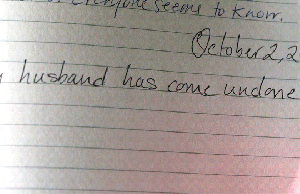 everyone seems to know.
October 2, 2
husband has come undone